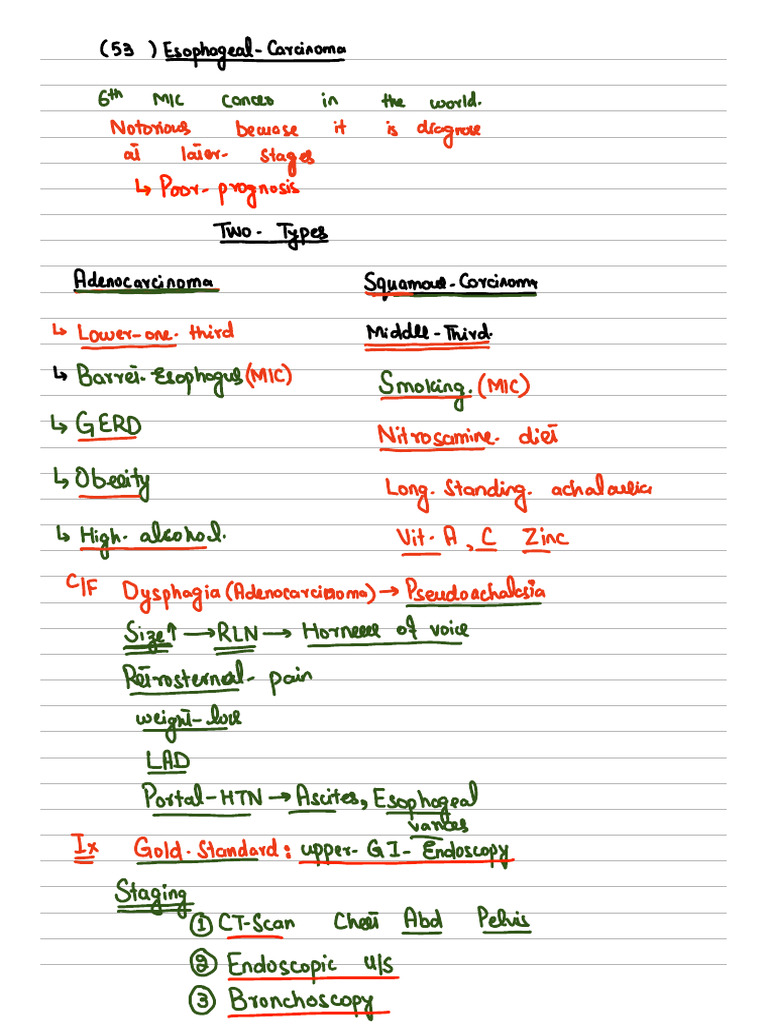 (53 ) Esophageal-Carcinoma
6th MIC Cancer in the world.
Notorious because it is diagnose
at later- stages
↳ Poor- prognosis
Two- Types
Adenocarcinoma
↳ Lower-one- third
↳ Barret- Esophagus (MIC)
↳ GERD
↳ Obesity
↳ High- alcohol.
Squamous-Carcinoma
Middle-Third.
Smoking. (MIC)
Nitrosamine- diet
Long. Standing. achalasia
Vit- A, C Zinc
C/F Dysphagia (Adenocarcinoma) → Pseudoachalasia
Size↑ → RLN → Horness of voice
Retrosternal- pain
weight-lose
LAD
Portal-HTN → Ascites, Esophageal
varices
Ix Gold-Standard: upper-GI-Endoscopy
Staging
① CT-Scan Chest Abd Pelvis
② Endoscopic u/s
③ Bronchoscopy